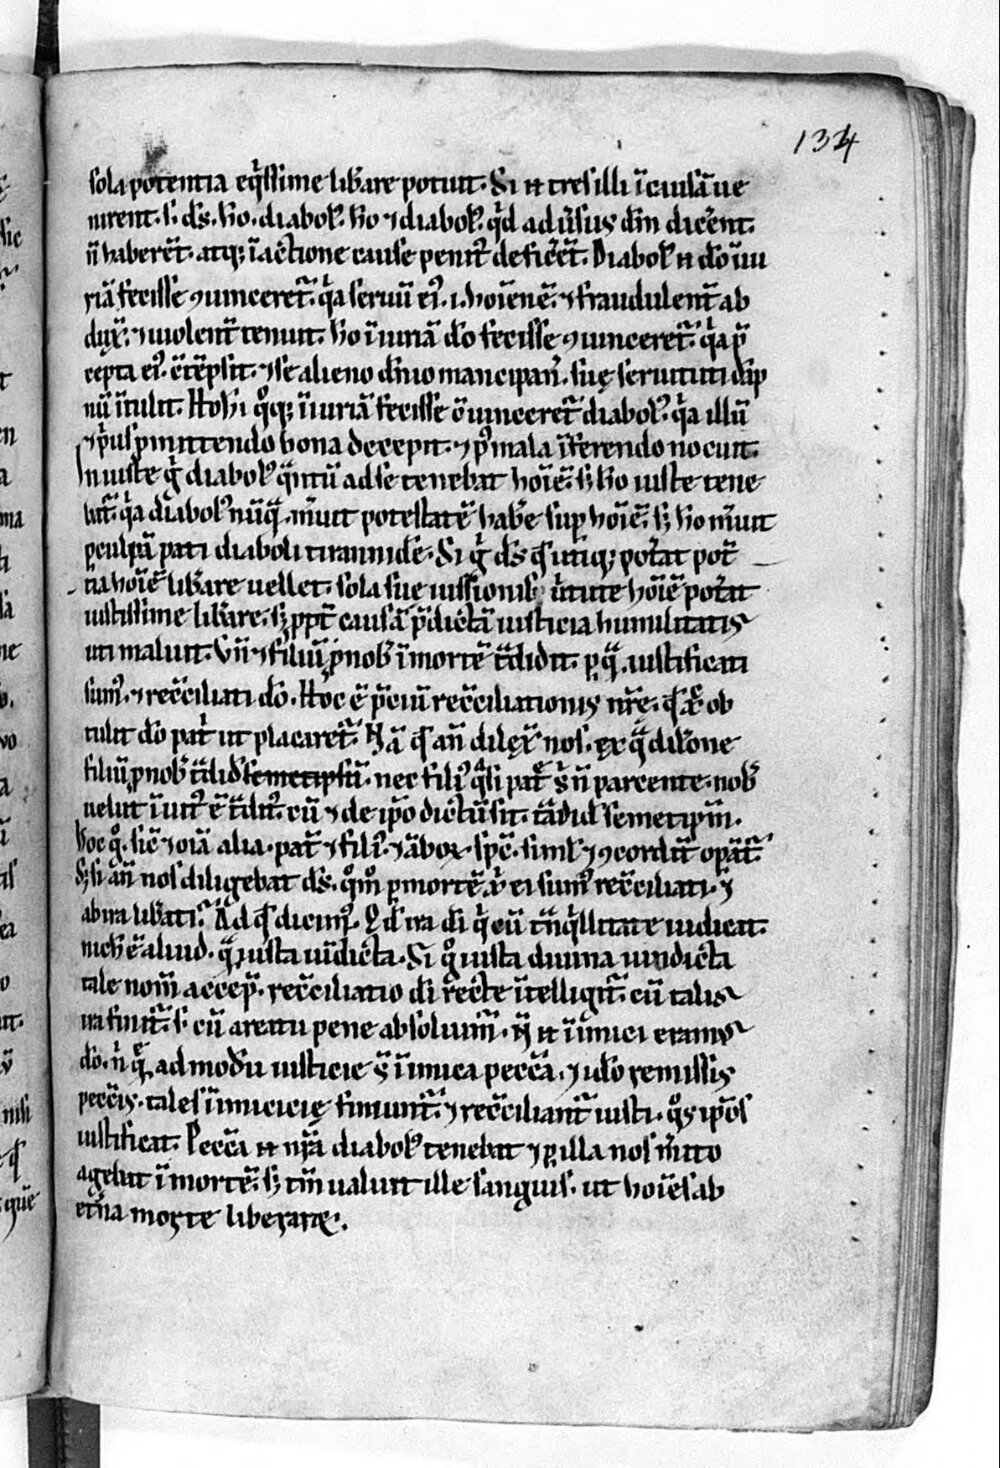 134
sola potentia eq̇ssime lib̄are potuit. Si n̄ tres illi ī causā ue
nirent. s. ds̄. ho. diabol᷒. ho ⁊ diabol᷒. qd̄ adūsus dm̄ dicēnt.
n̄ haberēt. atq; ī actione cause penit᷒ deficēt. Diabol᷒ n̄ dō iniu
riā fecisse ꝯuinceret᷒. qa seruū ei᷒. i. hoīem̄. ⁊ fraudulent̄ ab
dux̄. ⁊ uiolent̄ tenuit. ho īiuriā dō fecisse ꝯuinceret᷒. qa p̄
cepta ei᷒ ꝯtēpsit. ⁊ se alieno dn̄io mancipan᷒.
nū ītulit. Hoī q̊q; īiuriā fecisse ꝯuinceret᷒ diabol᷒. qa illū
⁊ p̄us ꝓmittendo bona decepit. ⁊ p᷒ mala īferendo nocuit.
Iniuste g̊ diabol᷒ q̄ntū ad se tenebat hoīe. s; ho iuste tene
bat᷒. qa diabol᷒ nūq̄. m̄uit potestatē hab̄e sup hoīe. s; ho m̄uit
ꝑ culpā pati diaboli tirannidē. Si g̊ ds̄ q̇ utiq; pot̄at potē
tia hoīe lib̄are uellet. sola sue iussionis ūtute hoīe pot̄at
iustissime lib̄are. s; ꝓpt̄ causā p̄dictā iusticia humilitatis
uti maluit. Vn̄ ⁊ filiū ꝓ nob᷒ ī mortē t̄didit. ꝑ q̄. iustificati
sum᷒. ⁊ recc̄iliati dō. Hoc ē p̄ciū recc̄iliationis nr̄e. q̇d xp̄c ob
tulit dō patī ut placaret᷒. Nā q̇ an̄ dilex̄ nos. ex q̄ dil̄one
filiū ꝓ nob᷒ t̄did̄ semetipsū. nec fili᷒ q̊si pat̄e s; n̄ parcente. nob᷒
uelut īuit᷒ ē t̄dit᷒. cū ⁊ de ip̄o dictū sit. t̄adid̄ semetip̄m.
Hoc g̊. sic̄ ⁊ oīa alia. pat̄ ⁊ fili᷒. ⁊ āboꝝ. sp̄c. siml̄ ⁊ ꝯcordit̄ opāt᷒.
S; si an̄ nos diligebat ds̄. qm̊o ꝑ mortē x̄ ei sum᷒ recc̄iliati. ⁊
ab ira lib̄ati᷒. Ad q̇ dicim᷒. Q d̄ ira dī q̇ cū t̄nq̇llitate iudicat.
nich̄ ē aliud. q̄ iusta uīdicta. Si g̊ iusta diuina uindicta
tale nom̄ accep̄. recc̄iliatio dī recte ītelligit᷒. cū talis
ira finit᷒. s. cū a reatu pene absoluim᷒. N̄ n̄ īimici eram᷒
dō. n̄ q̄ ad modū iusticie s; īimica pecc̄a. ⁊ idō remissis
pecc̄is. tales īimicicię finiunt᷒. ⁊ recc̄iliant᷒ iusti. q̊s ip̄s
iustificat. Pecc̄a n̄ nr̄a diabol᷒ tenebat ⁊ ꝑ illa nos m̄ito
agebat ī mortē. s; tm̄ ualuit ille sanguis. ut hoīes ab
et̄na morte liberaret.